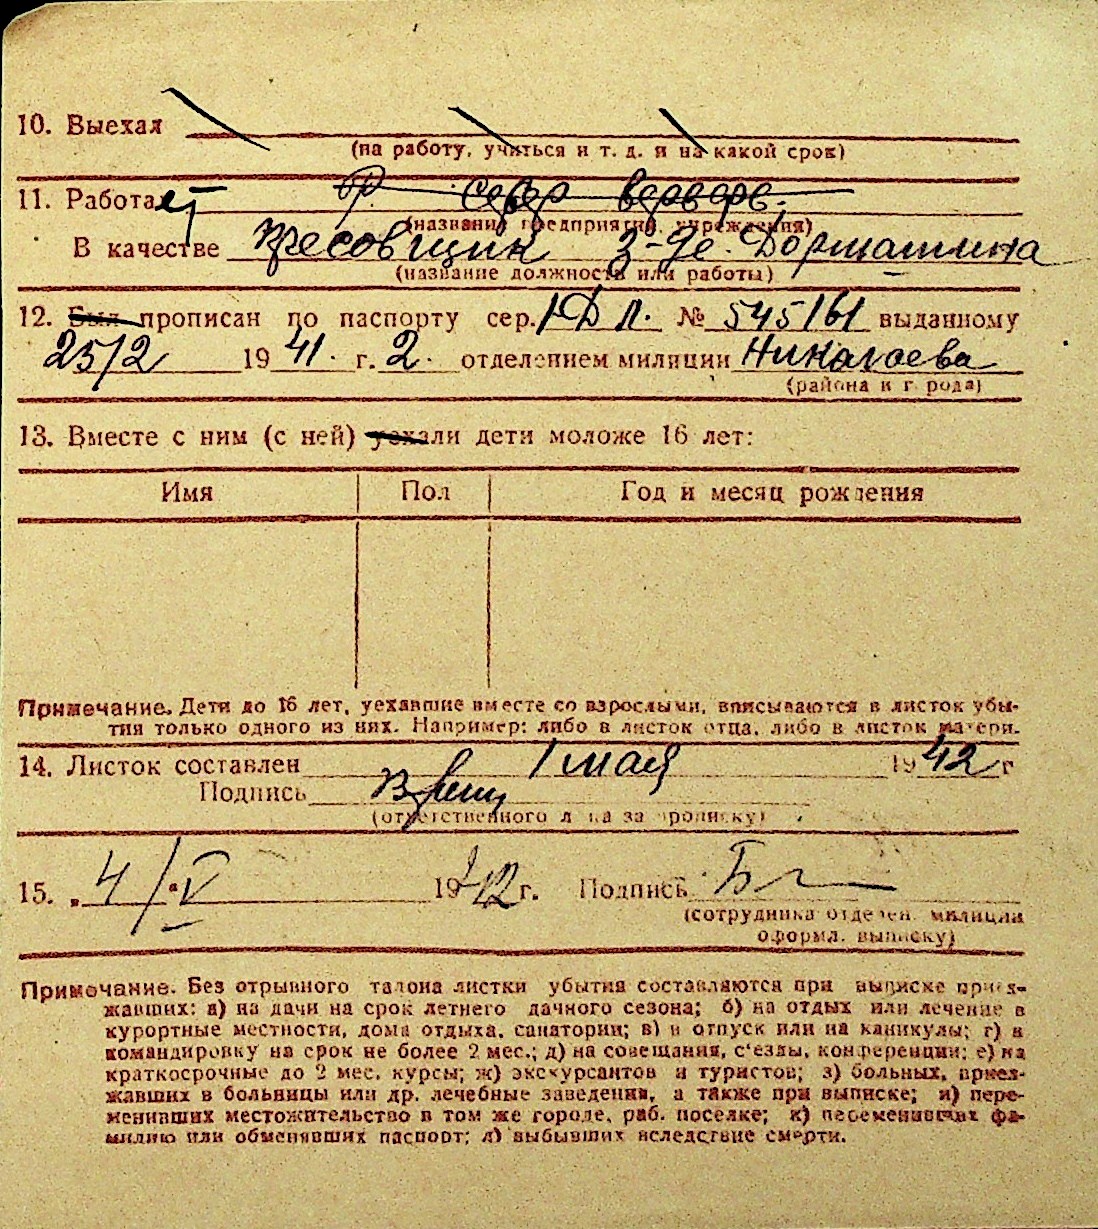 10. Выехал
(на работу, учиться и т. д. и на какой срок)
11. Работает
(название предприятия, учреждения)
В качестве прессовщик з-де. Дормашина
(название должности или работы)
12. Был прописан по паспорту сер. I ДЛ. № 545161 выданному
25/2 1941. г. 2. отделением милиции Николаева
(района и города)
13. Вместе с ним (с ней) уехали дети моложе 16 лет:
Имя Пол Год и месяц рождения
Примечание. Дети до 16 лет, уехавшие вместе со взрослыми, вписываются в листок убы-
тия только одного из них. Например: либо в листок отца, либо в листок матери.
14. Листок составлен 1 мая 1942 г
Подпись
(ответственного лица за прописку)
15. „4/V 1942 г. Подпись
(сотрудника отделен. милиции
оформл. выписку)
Примечание. Без отрывного талона листки убытия составляются при выписке приез-
жавших: а) на дачи на срок летнего дачного сезона; б) на отдых или лечение в
курортные местности, дома отдыха, санатории; в) в отпуск или на каникулы; г) в
командировку на срок не более 2 мес.; д) на совещания, с'езды, конференции; е) на
краткосрочные до 2 мес. курсы; ж) экскурсантов и туристов; з) больных, приез-
жавших в больницы или др. лечебные заведения, а также при выписке; и) пере-
менивших местожительство в том же городе, раб. поселке; к) переменивших фа-
милию или обменявших паспорт; л) выбывших вследствие смерти.